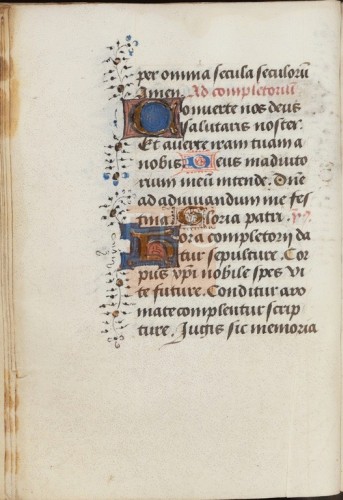 per omnia secula seculorũ
Amen. Ad completoriũ
Converte nos deus
salutaris noster.
Et averte iram tuam a
nobis. Deus in adiuto
rium meũ intende. Dñe
ad adiuvandum me fes
tina. Gloria patri. ỹp̃.
Hora completorii da
tur sepulture. Cor
pus xp̃i nobile spes vi
te future. Conditur aro
mate complentur scrip
ture. Jugis sic memoria